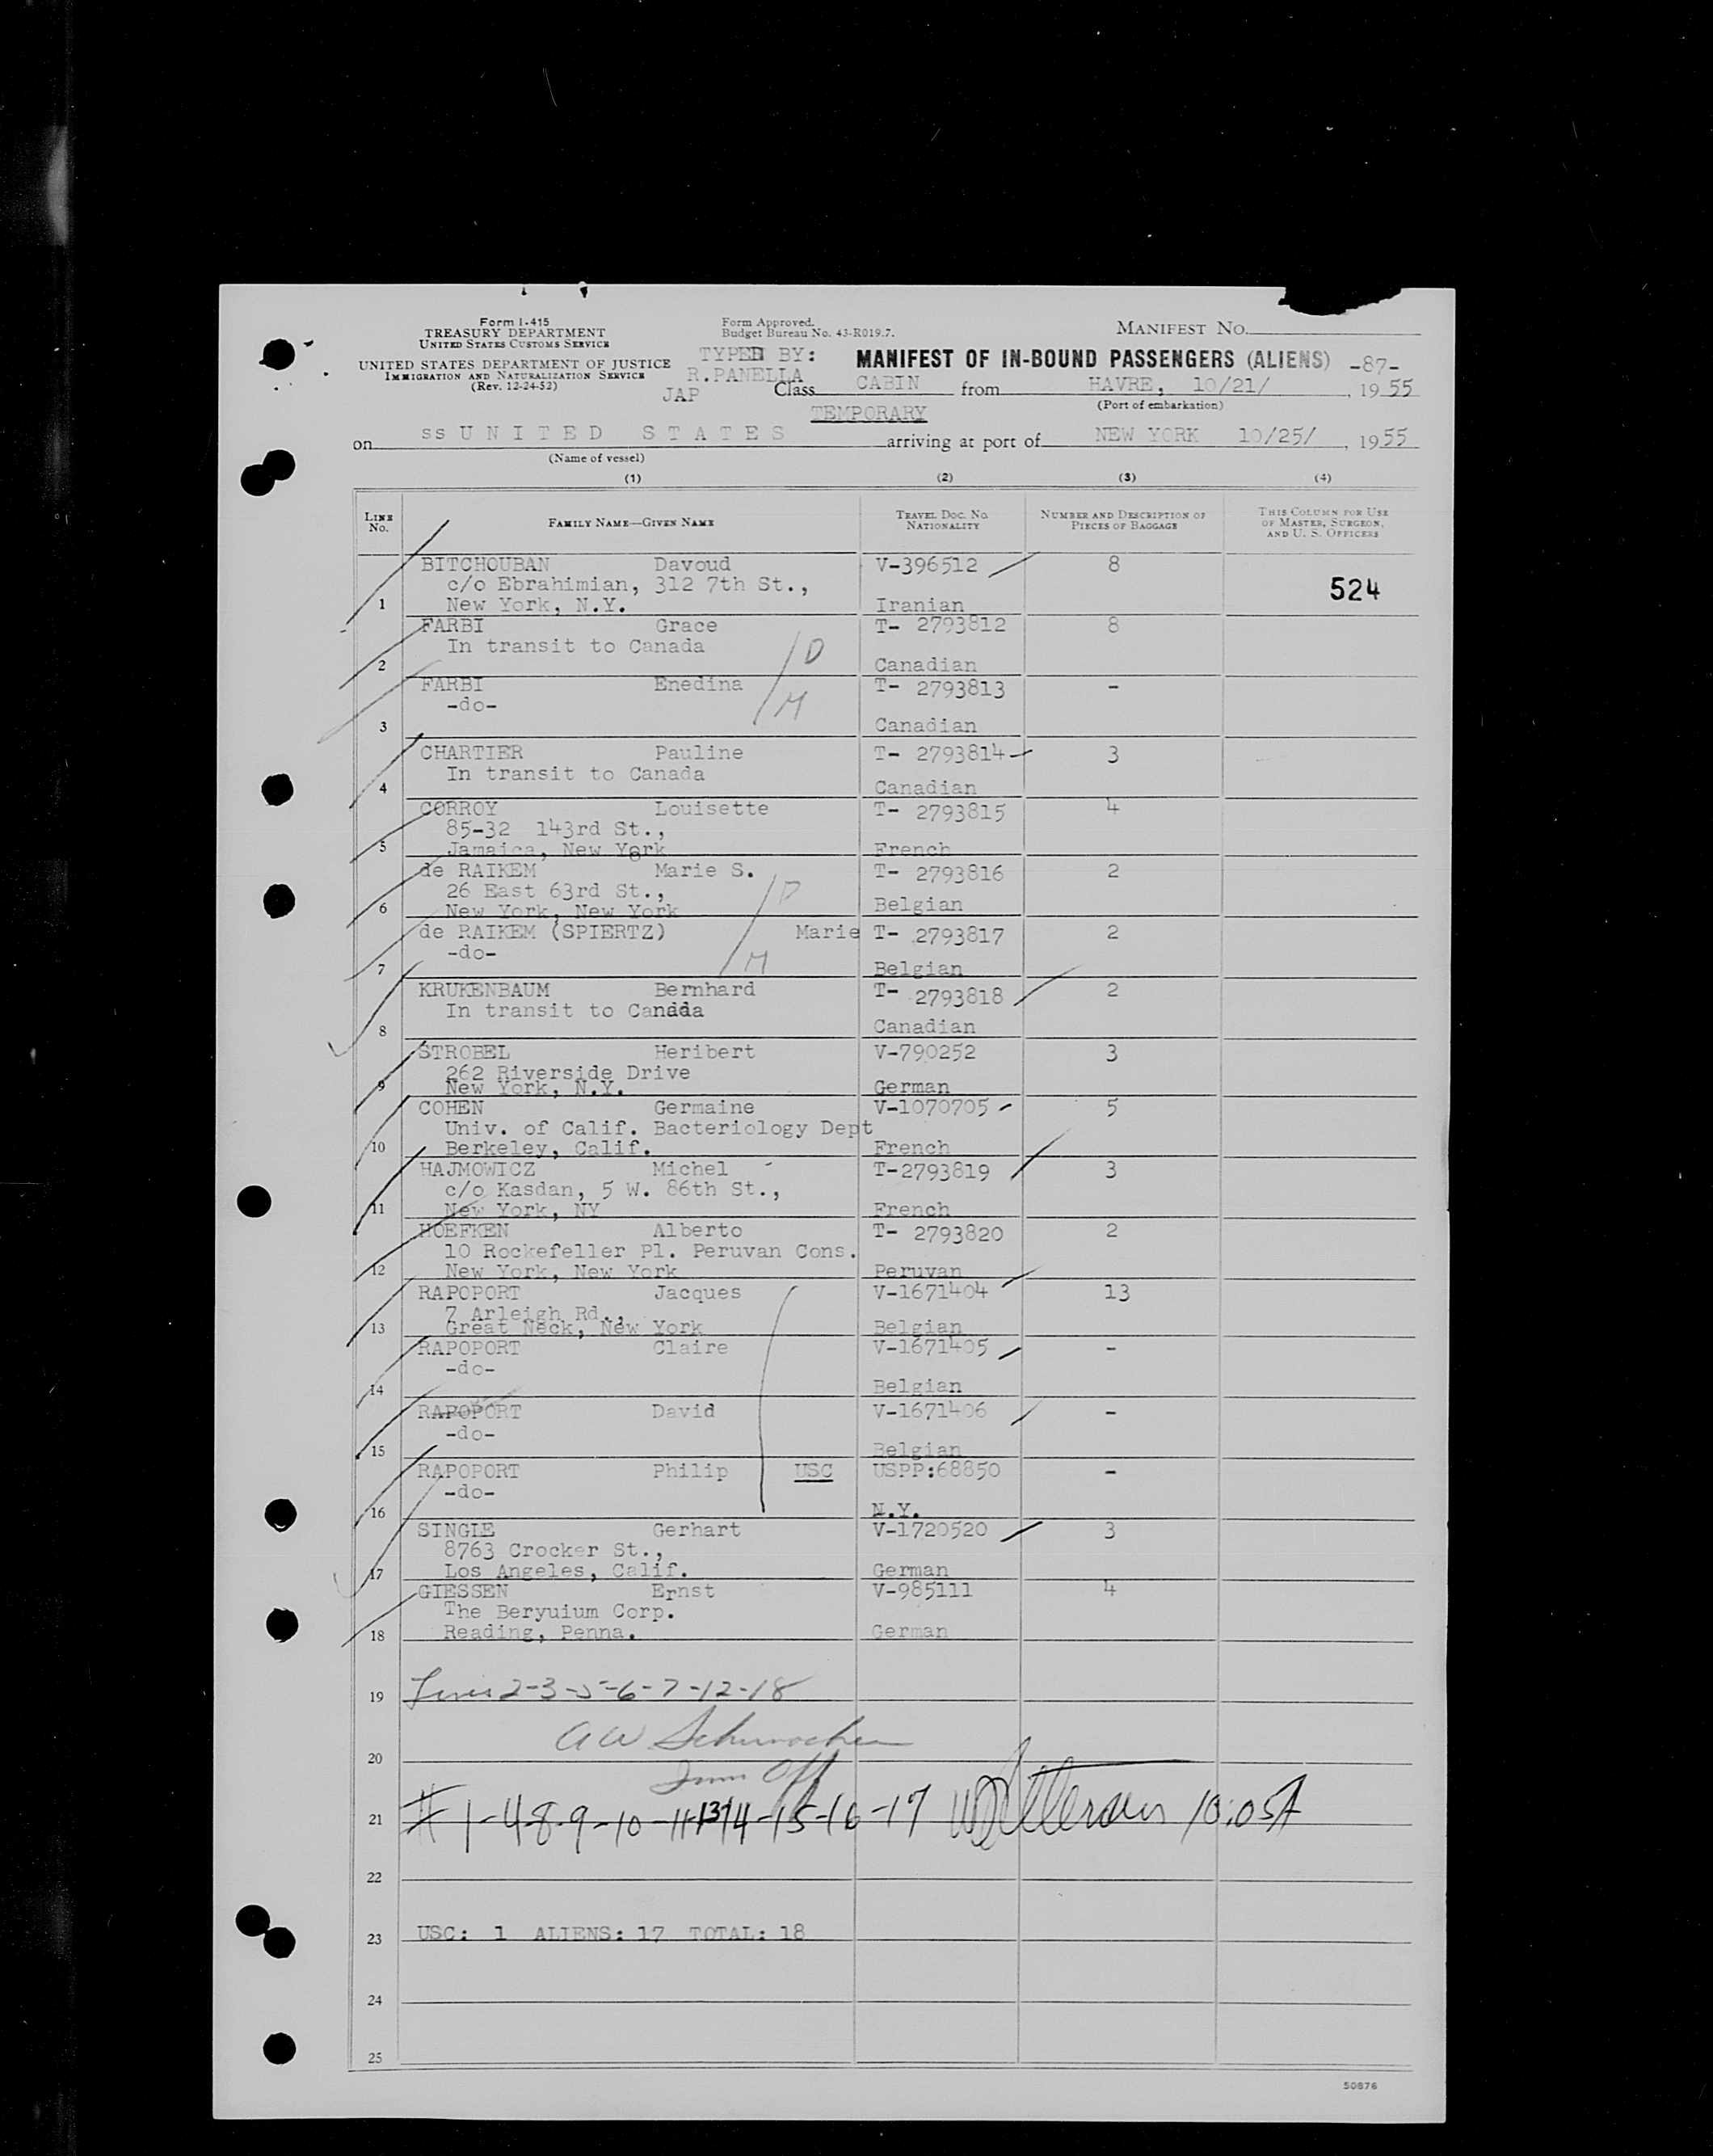 Form I-415
TREASURY DEPARTMENT
UNITED STATES CUSTOMS SERVICE
UNITED STATES DEPARTMENT OF JUSTICE
IMMIGRATION AND NATURALIZATION SERVICE
(Rev. 12-24-52)
Form Approved.
Budget Bureau No. 43-R019.7.
TYPED BY:
R.PANELLA
JAP
MANIFEST NO.
MANIFEST OF IN-BOUND PASSENGERS (ALIENS) -87-
Class CABIN from HAVRE, 10/21/ , 1955
(Port of embarkation)
TEMPORARY
on ss UNITED STATES arriving at port of NEW YORK 10/25/ , 1955
(Name of vessel)
(1) (2) (3) (4)
LINE No. FAMILY NAME—GIVEN NAME TRAVEL DOC. NO. NATIONALITY NUMBER AND DESCRIPTION OF PIECES OF BAGGAGE THIS COLUMN FOR USE OF MASTER, SURGEON, AND U. S. OFFICERS
BITCHOUBAN Davoud V-396512 8
c/o Ebrahimian, 312 7th St., 524
1 New York, N.Y. Iranian
FARBI Grace T- 2793812 8
In transit to Canada D
2 Canadian
FARBI Enedina T- 2793813 -
-do- M
3 Canadian
CHARTIER Pauline T- 2793814 3
In transit to Canada
4 Canadian
CORROY Louisette T- 2793815 4
85-32 143rd St.,
5 Jamaica, New York French
de RAIKEM Marie S. T- 2793816 2
26 East 63rd St., D
6 New York, New York Belgian
de RAIKEM (SPIERTZ) Marie T- 2793817 2
-do- M
7 Belgian
KRUKENBAUM Bernhard T- 2793818 2
In transit to Canada
8 Canadian
STROBEL Heribert V-790252 3
262 Riverside Drive
9 New York, N.Y. German
COHEN Germaine V-1070705 5
Univ. of Calif. Bacteriology Dept
10 Berkeley, Calif. French
HAJMOWICZ Michel T-2793819 3
c/o Kasdan, 5 W. 86th St.,
11 New York, NY French
HOEFKEN Alberto T- 2793820 2
10 Rockefeller Pl. Peruvan Cons.
12 New York, New York Peruvan
RAPOPORT Jacques V-1671404 13
7 Arleigh Rd.,
13 Great Neck, New York Belgian
RAPOPORT Claire V-1671405 -
-do-
14 Belgian
RAPOPORT David V-1671406 -
-do-
15 Belgian
RAPOPORT Philip USC USPP:68850 -
-do-
16 N.Y.
SINGLE Gerhart V-1720520 3
8763 Crocker St.,
17 Los Angeles, Calif. German
GIESSEN Ernst V-985111 4
The Beryuium Corp.
18 Reading, Penna. German
19 Lines 2-3-5-6-7-12-18
AW Schumacher
20
Imm Off
21 # 1-4-8-9-10-11-13-14-15-16-17 10:05A
22
23 USC: 1 ALIENS: 17 TOTAL: 18
24
25
50876